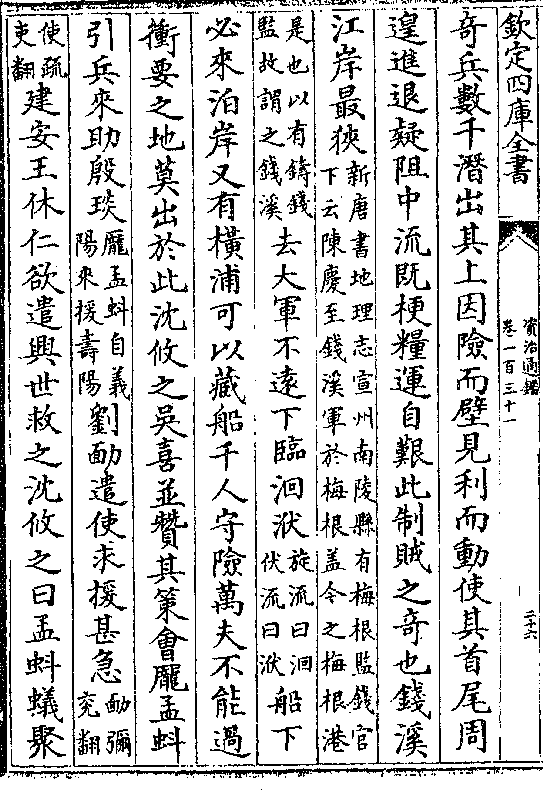 欽定四庫全書
資治通鑑
卷一百三十一
二十六
奇兵數千潛出其上因險而壁見利而動使其首尾周
遑進退疑阻中流既梗糧運自艱此制賊之奇也錢溪
江岸最狹新唐書地理志宣州南陵縣有梅根監錢官
下云陳慶至錢溪軍於梅根盖今之梅根港
是也以有鑄錢
監故謂之錢溪去大軍不遠下臨洄洑旋流曰洄
伏流曰洑船下
必來泊岸又有橫浦可以藏船千人守險萬夫不能過
衝要之地莫出於此沈攸之吳喜並贊其策會龎孟蚪
引兵來助殷琰龎孟蚪自義
陽來援壽陽劉勔遣使求援甚急勔彌
兖翻
使疏
吏翻建安王休仁欲遣興世救之沈攸之曰孟蚪蟻聚